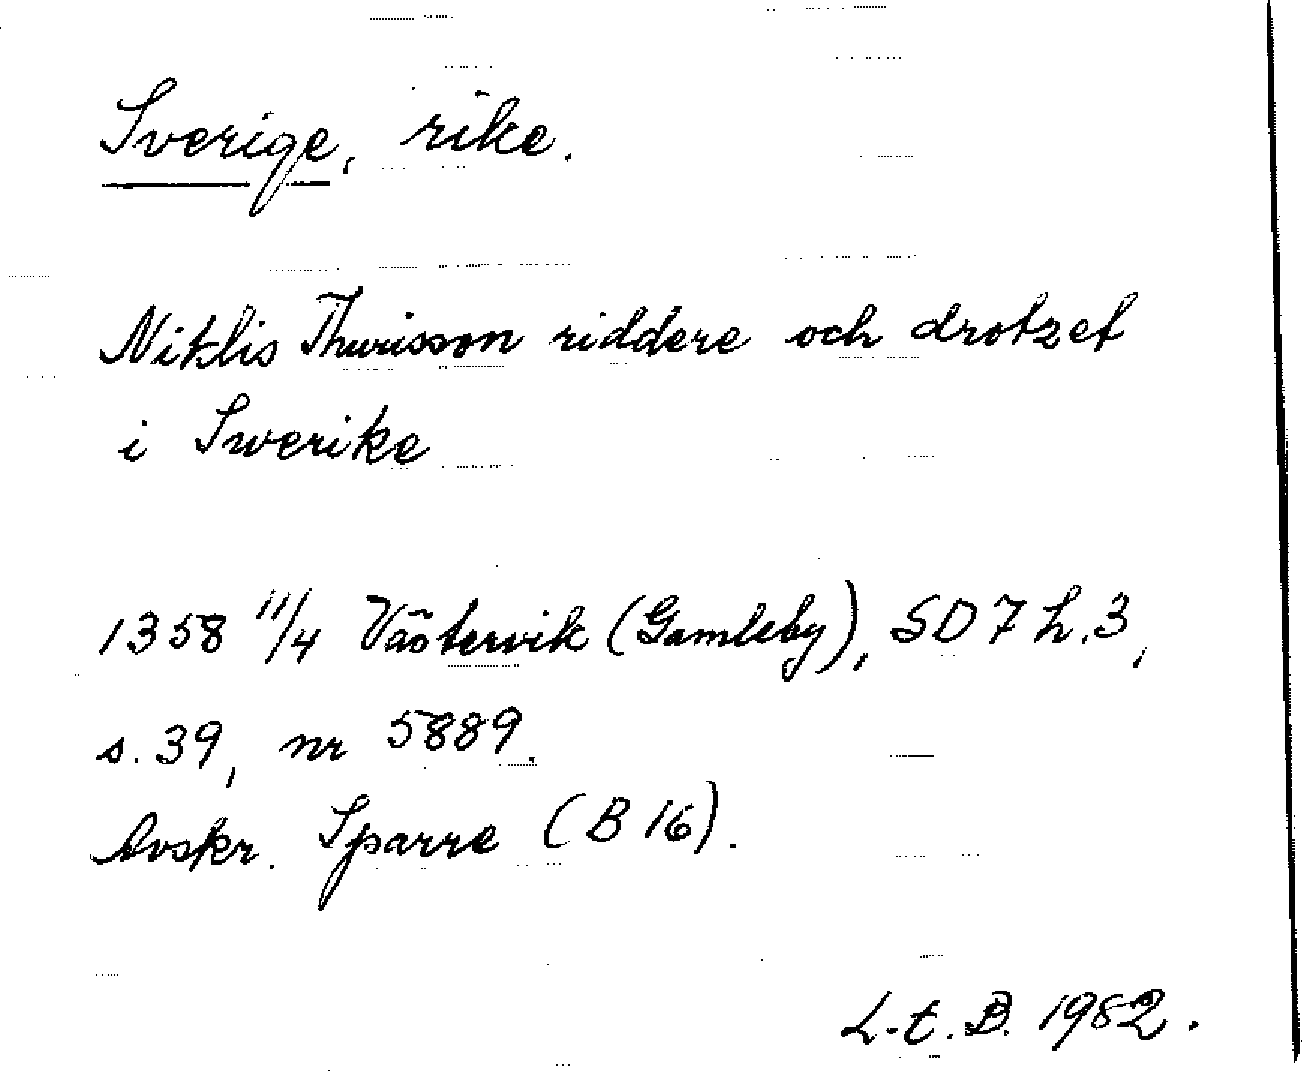 Sverige, rike.
Niklis Thurisson riddere och drotzet
i Swerike
1358 11/4 Västervik (Gamleby), SD 7 h. 3,
s. 39, nr 5889.
Avskr. Sparre (B 16).
L-t. B. 1982.